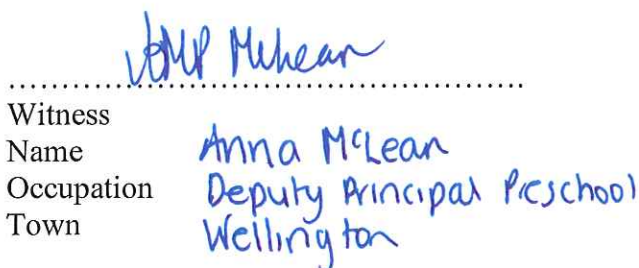 McLean
........................................................
Witness
Name Anna McLean
Occupation Deputy Principal Preschool
Town Wellington